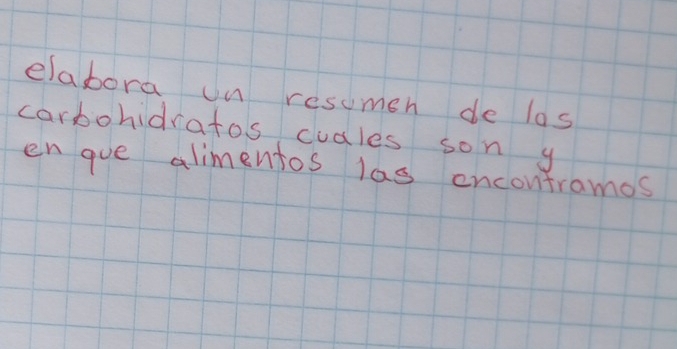 elabora un resumen de las
carbohidratos cuales son y
en que alimentos las encontramos